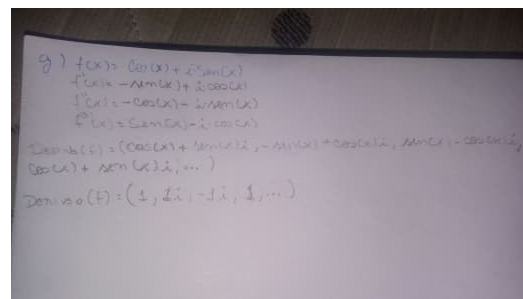 g) f(x)= cos(x)+ i sen(x)
f'(x)= -sen(x)+ i cos(x)
f''(x)= -cos(x)- i sen(x)
f'''(x)= sen(x)- i cos(x)
(f)=(cos(x)+ sen(x)i, -sen(x)+cos(x)i, sen(x)-cos(x)i,
cos(x)+ sen(x)i, ...)
(f)=(1, 1i, -1i, 1, ...)